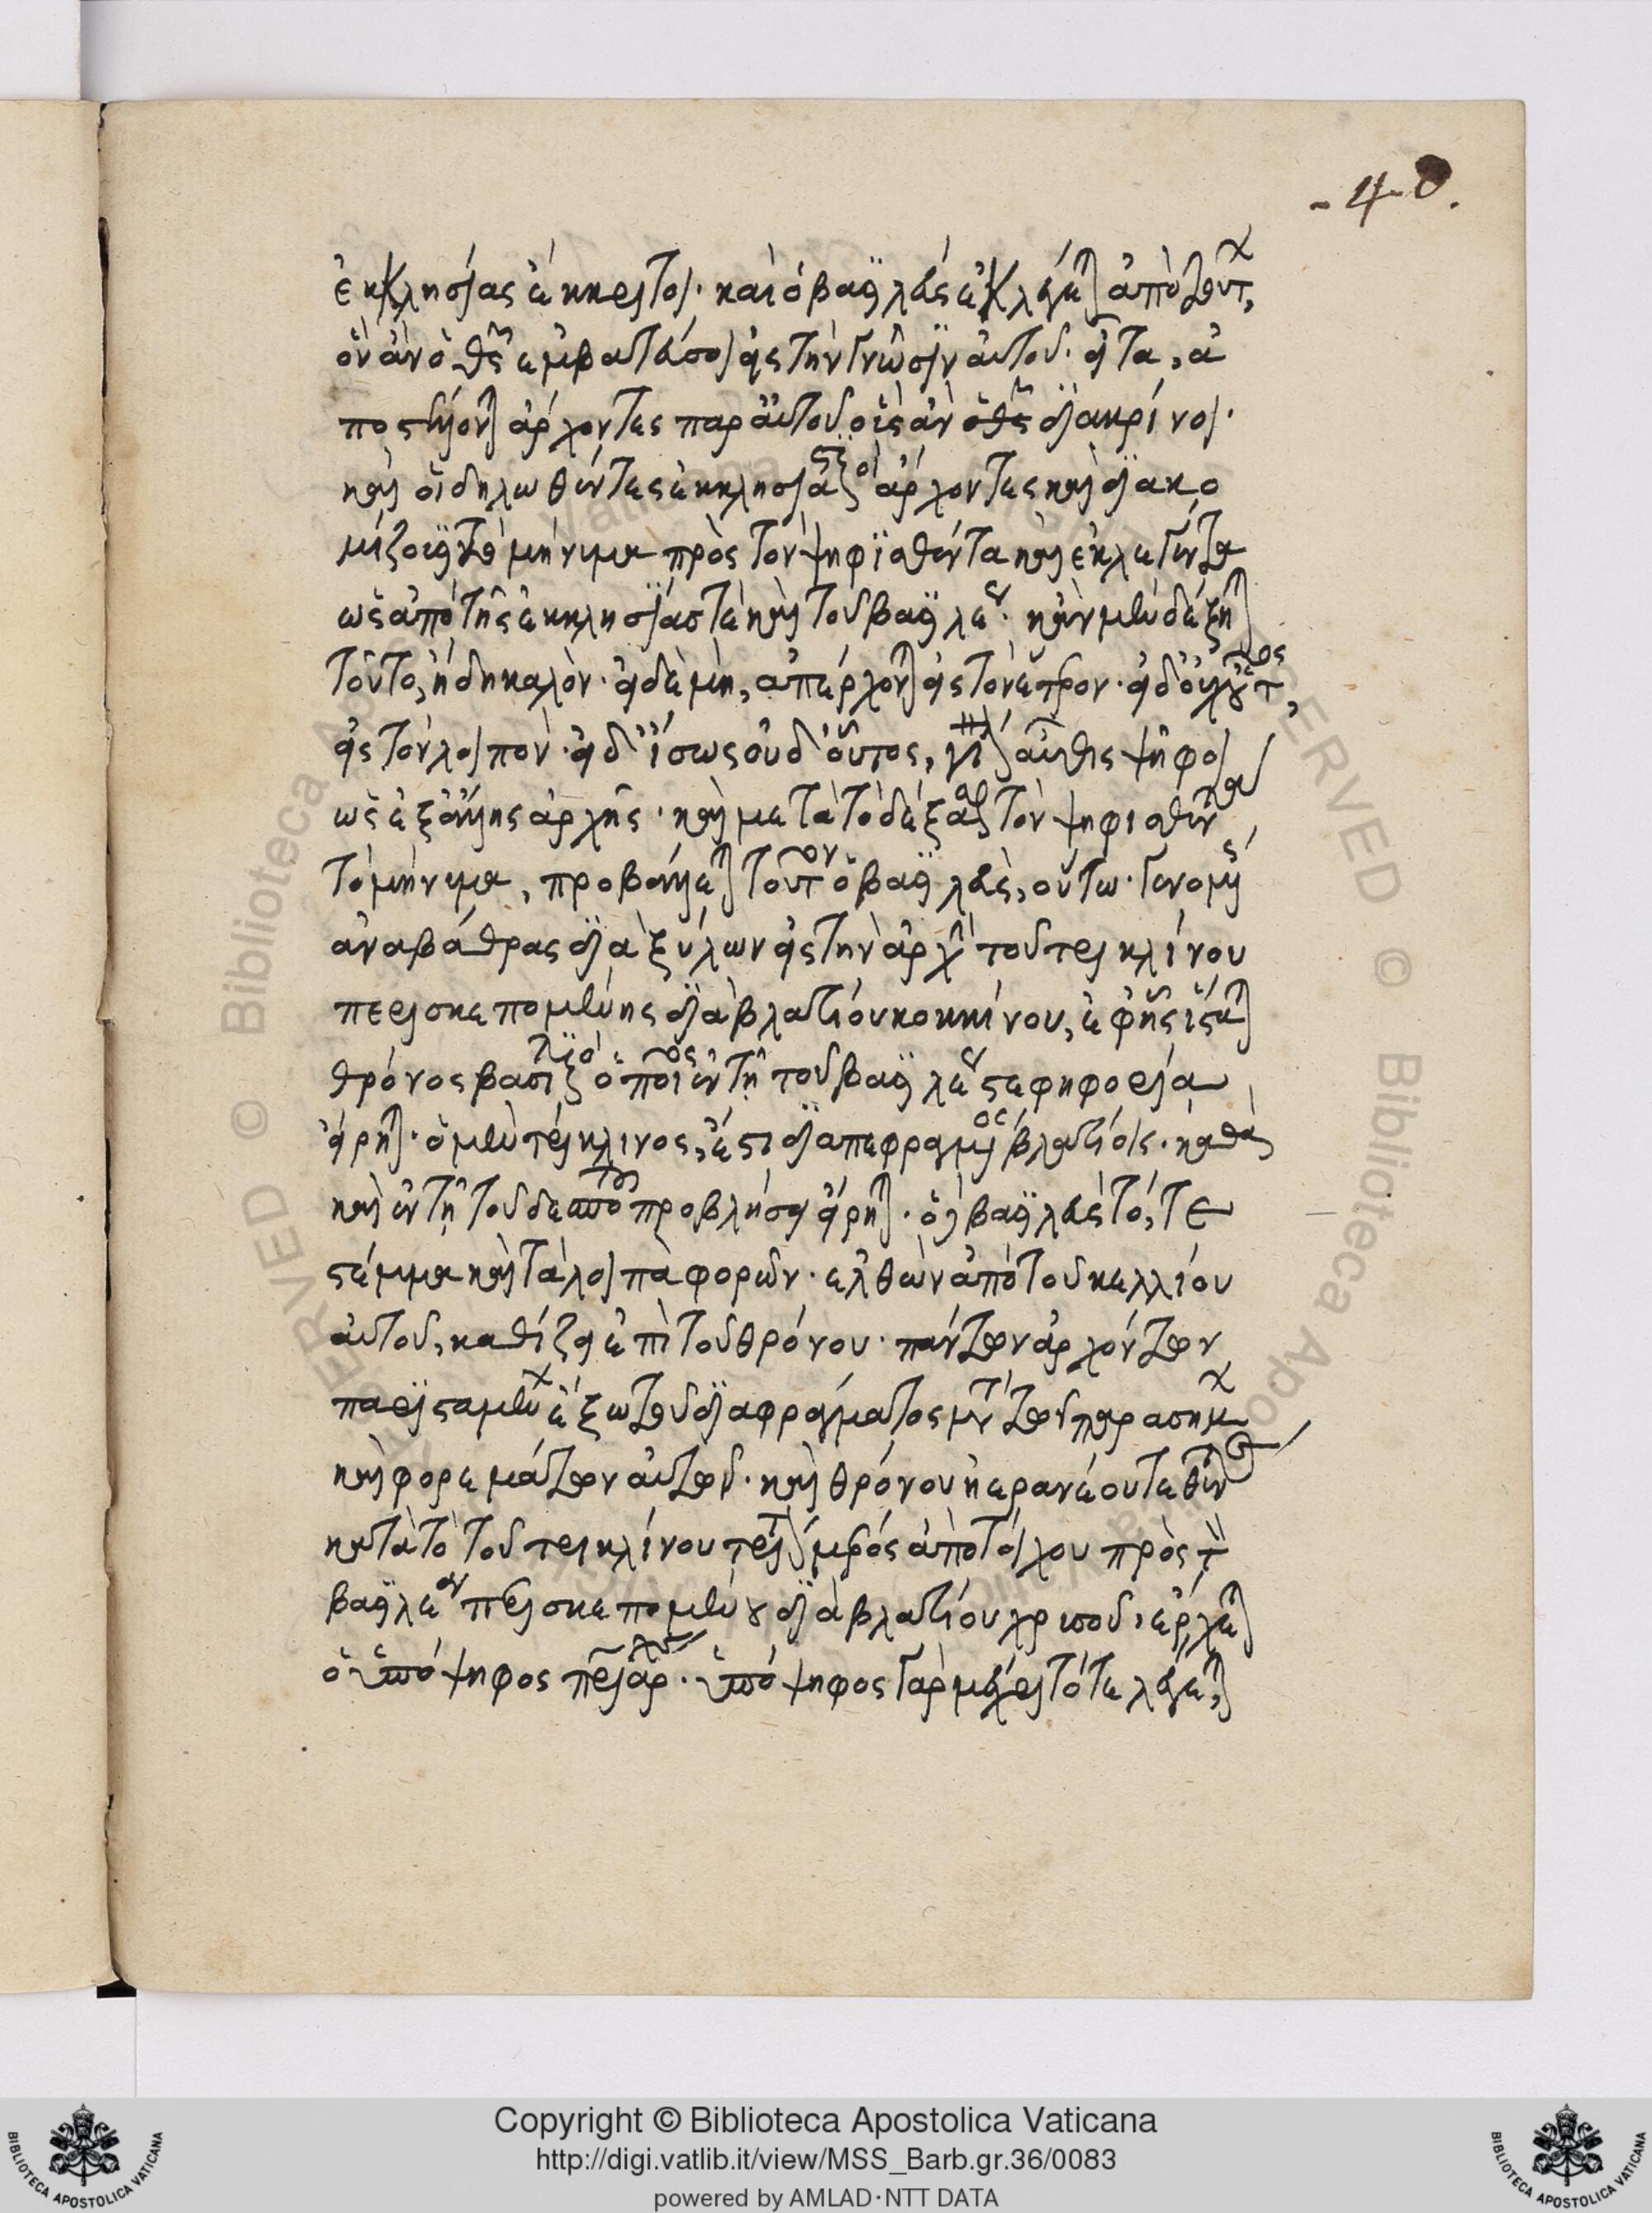 -40.
ἐκκλησίας ἔκκριτοι. καὶ ὁ βασιλεὺς ἐκλέγεται ἀπὸ τούτων,
ὃν ἂν ὁ θεὸς ἐμβατεύσοι εἰς τὴν γνῶσιν αὐτοῦ. εἶτα, ἀ
ποστέλλονται ἄρχοντες παρ' αὐτοῦ οἷς ἂν ὁ θεὸς διακρίνοι.
καὶ οἱ δηλωθέντες ἐκκλησιαστικοὶ ἄρχοντες καὶ διακο
μίζουσι τὸ μήνυμα πρὸς τὸν ψηφισθέντα καὶ ἐκλεγέντα
ὡς ἀπὸ τῆς ἐκκλησίας τὲ καὶ τοῦ βασιλέως. κἂν μὲν δέξηται
τοῦτο, ἤδη καλόν. εἰ δὲ μὴ, ἀπέρχονται εἰς τὸν ἕτερον. εἰ δ' οὐχ οὗτος,
εἰς τὸν λοιπόν. εἰ δ' ἴσως οὐδ' οὗτος, γίνονται αὖθις ψῆφοι
ὡς ἐξ ἄλλης ἀρχῆς. καὶ μετὰ τὸ δέξασθαι τὸν ψηφισθέντα
τὸ μήνυμα, προβάλλεται τοῦτον ὁ βασιλεὺς, οὕτω. γενομένης
ἀναβάθρας διὰ ξύλων εἰς τὴν ἀρχὴν τοῦ τρικλίνου
περισκεπομένης διὰ βλαττίου κοκκίνου, ἐφ' ἧς ἵσταται
θρόνος βασιλικὸς ὁποῖος ἐν τῇ τοῦ βασιλέως στεφηφορία
εἴρηται. ὁ μὲν τρίκλινος, ἔστι διαπεφραγμένος βλαττίοις. καθὰ
καὶ ἐν τῇ τοῦ δεσπότου προβλήσει εἴρηται. ὁ δὲ βασιλεὺς τό, τε
στέμμα καὶ τὰ λοιπὰ φορῶν. ἐλθὼν ἀπὸ τοῦ κελλίου
αὐτοῦ, καθίζει ἐπὶ τοῦ θρόνου. πάντων ἀρχόντων
παρισταμένων ἔξω τοῦ διαφράγματος μετὰ τῶν παρασήμων
καὶ φορεμάτων αὐτῶν. καὶ θρόνου ἡεραναίου τεθέντος
κατὰ τὸ τοῦ τρικλίνου τρίτον μέρος ἀπὸ τοίχου πρὸς τὸν
βασιλέα περισκεπομένου διὰ βλαττίου χρυσοῦ. ἔρχεται
ὁ ὑπόψηφος πατριάρχης. ὑπόψηφος γὰρ μέχρι τότε λέγεται,
Copyright © Biblioteca Apostolica Vaticana
http://digi.vatlib.it/view/MSS_Barb.gr.36/0083
powered by AMLAD·NTT DATA